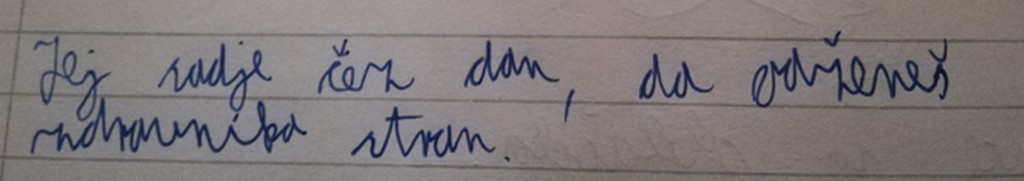 Jej radje čez dan, da odženeš
zdravnika stran.